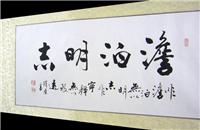 澹泊明志
非澹泊無以明志非寧靜無以致遠